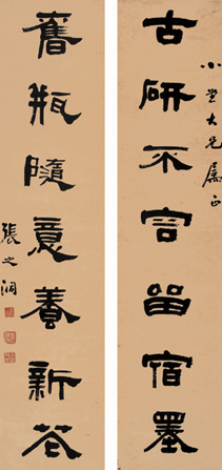 大兄屬正
古研不容留宿墨
舊瓶隨意養新花
張之洞